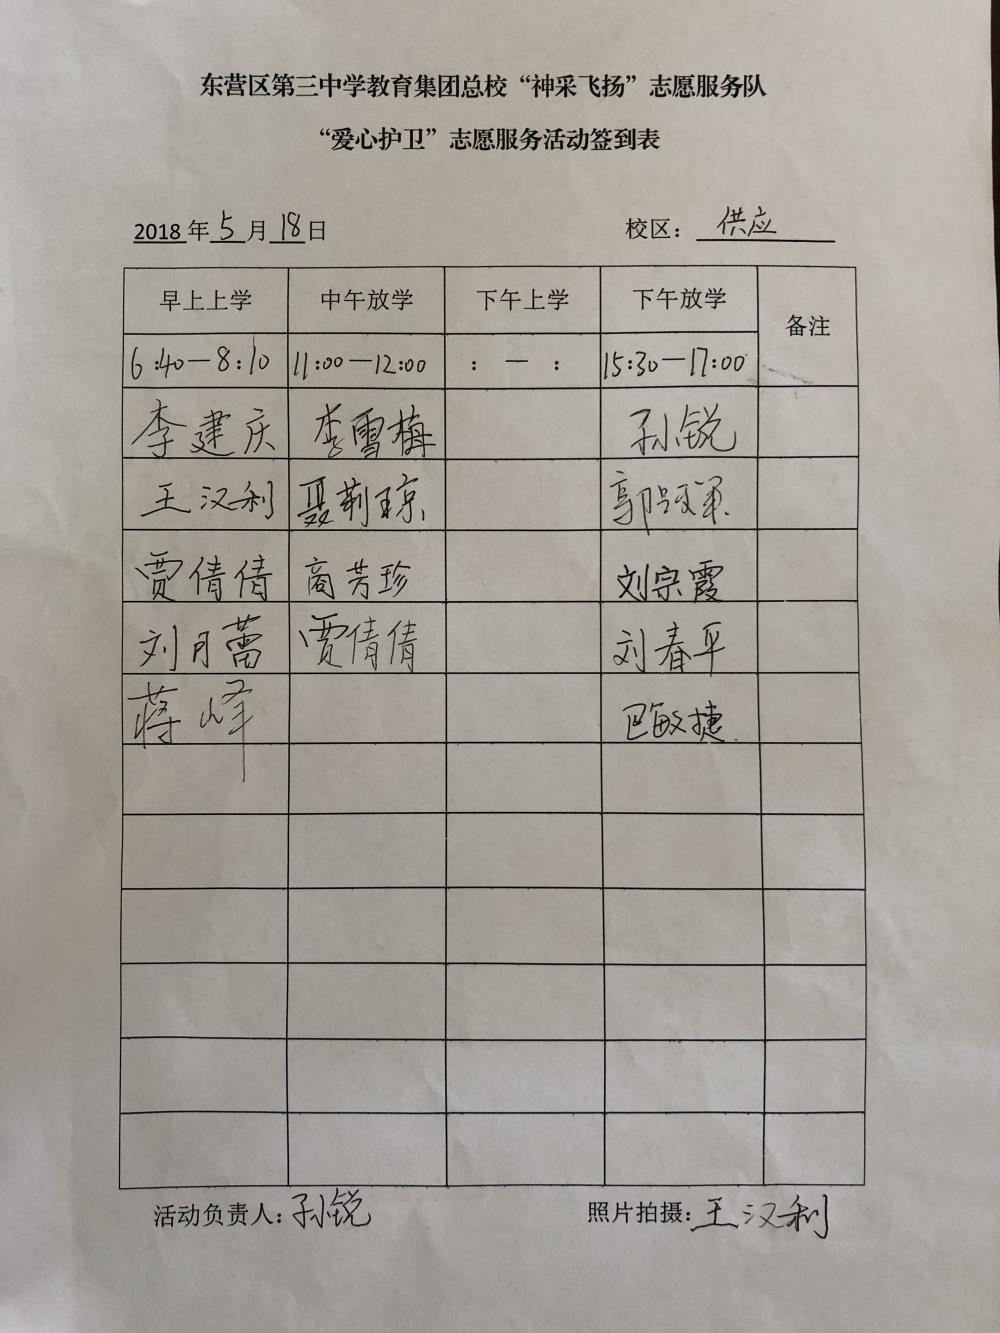 东营区第三中学教育集团总校“神采飞扬”志愿服务队
“爱心护卫”志愿服务活动签到表
2018年5月18日 校区：供应
早上上学 中午放学 下午上学 下午放学 备注
6:40—8:10 11:00—12:00 : — : 15:30—17:00
李建庆 李雪梅 孙锐
王汉利 聂荆琼
贾倩倩 商芳珍 刘宗霞
刘月蕾 贾倩倩 刘春平
蒋峰 巴敏捷
活动负责人：孙锐 照片拍摄：王汉利